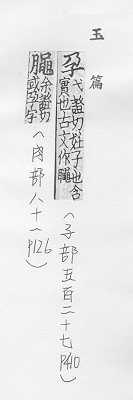 玉篇
孕 弋證切妊子也含
實也古文作
(子部五百二十七
P40)
余證切
或孕字
(肉部八十一
P126)